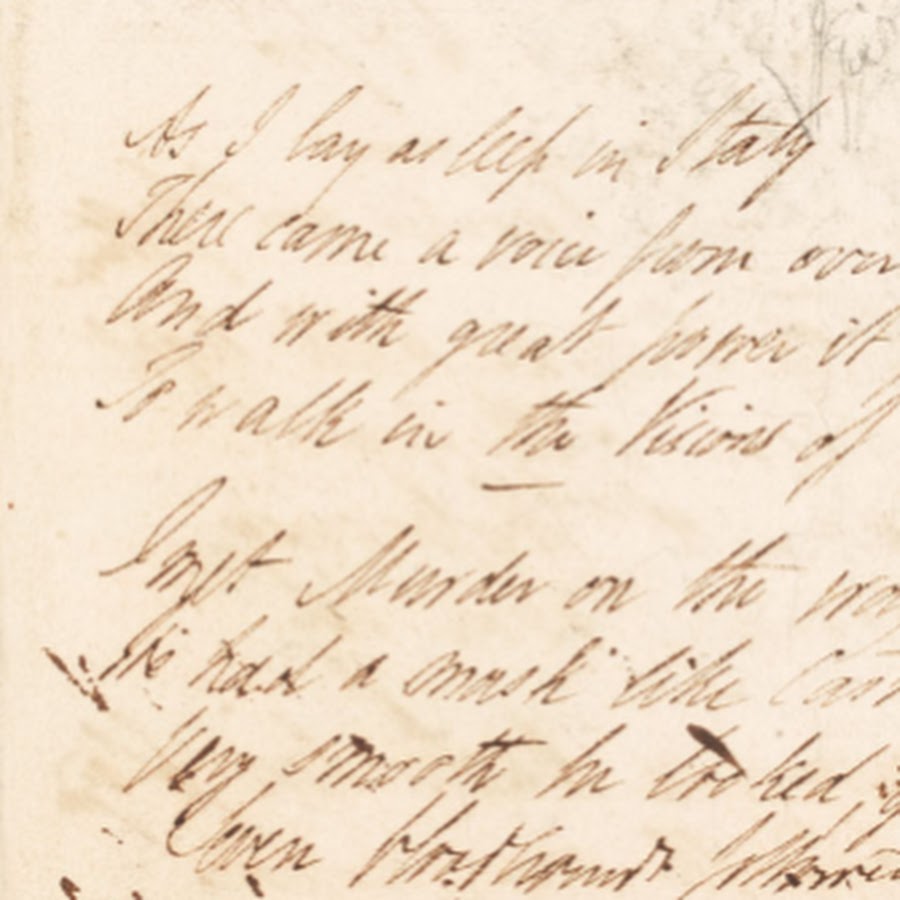 As I lay asleep in Italy
There came a voice from over
And with great power it
To walk in the Visions of
I met Murder on the
He had a mask like
Very smooth he looked
Seven bloodhounds followed